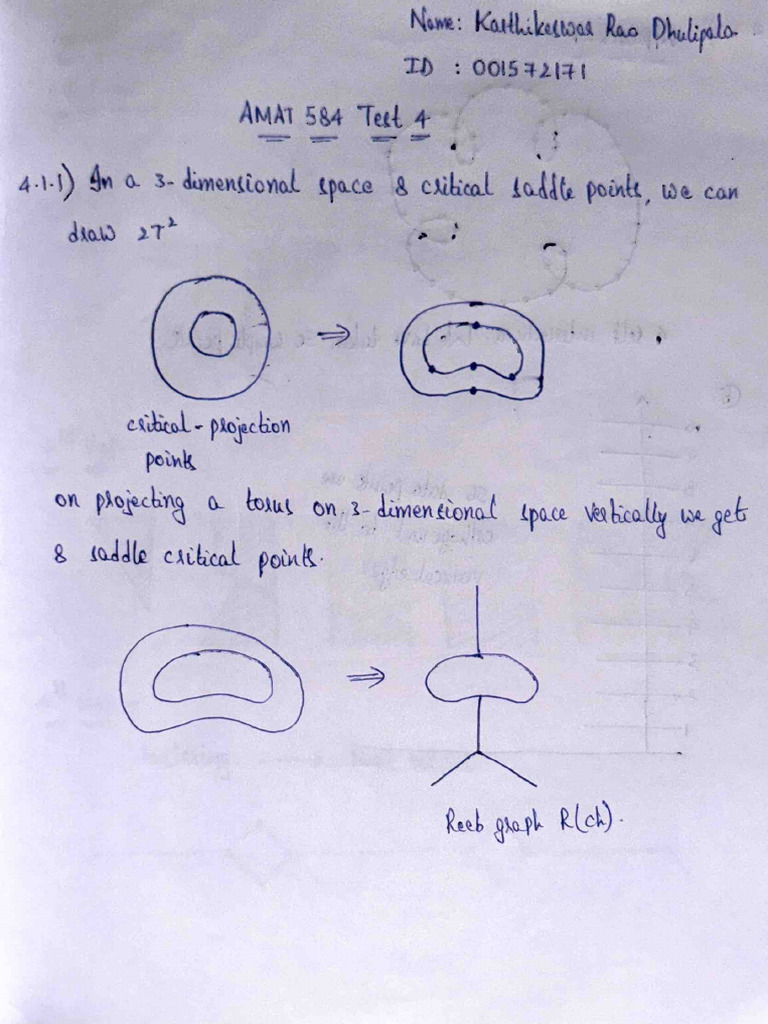 Name: Karthikeswar Rao Dhulipala
ID : 001572171
AMAT 584 Test 4
4.1.1) In a 3-dimensional space 8 critical saddle points, we can
draw 2T²
critical-projection
points
on projecting a torus on 3-dimensional space vertically we get
8 saddle critical points.
Reeb graph R(ch).